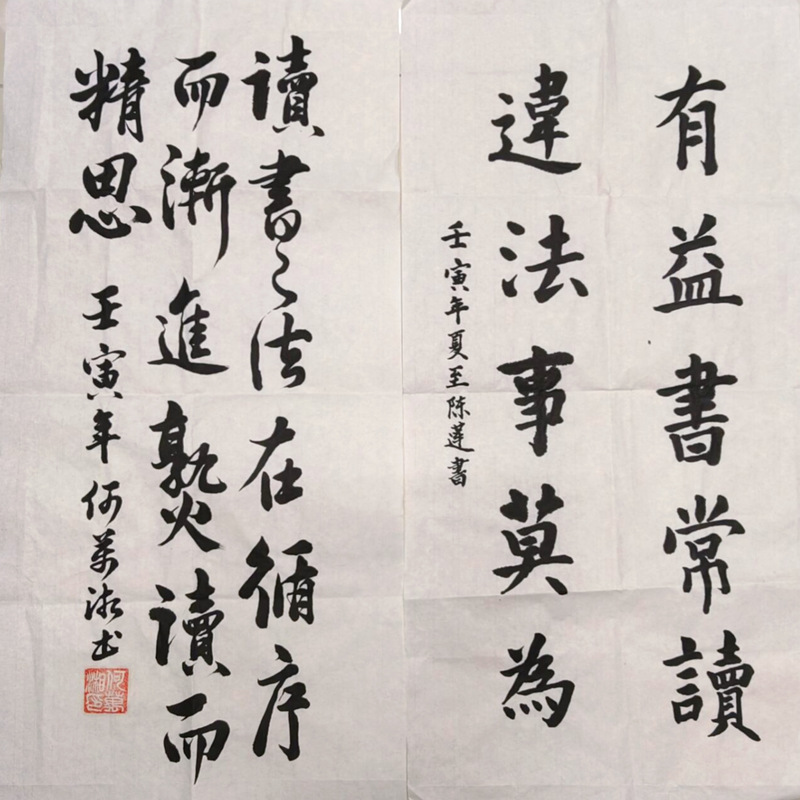 有益書常讀
違法事莫為
壬寅年夏至陈莲書
讀書之法在循序
而漸進熟讀而
精思
壬寅年何萬湘书
何萬湘印